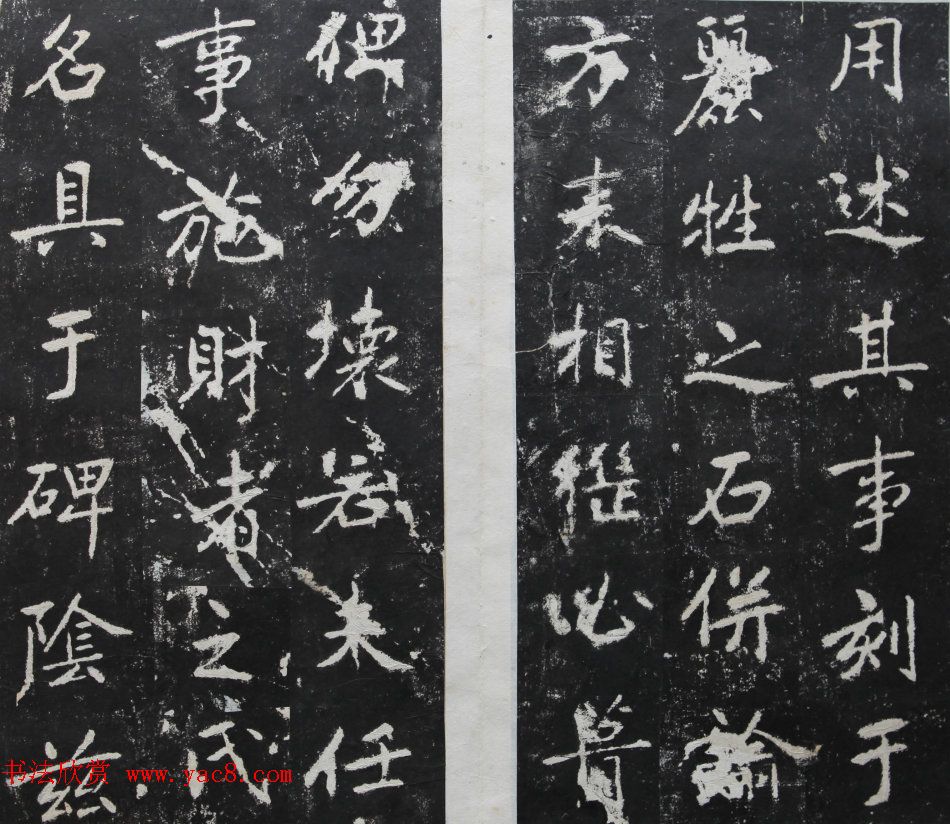 用述其事刻于
麗牲之石併諭
方来相继必葺
碑勿壞若任
事施財者之氏
名具于碑陰兹
书法欣赏 www.yac8.com